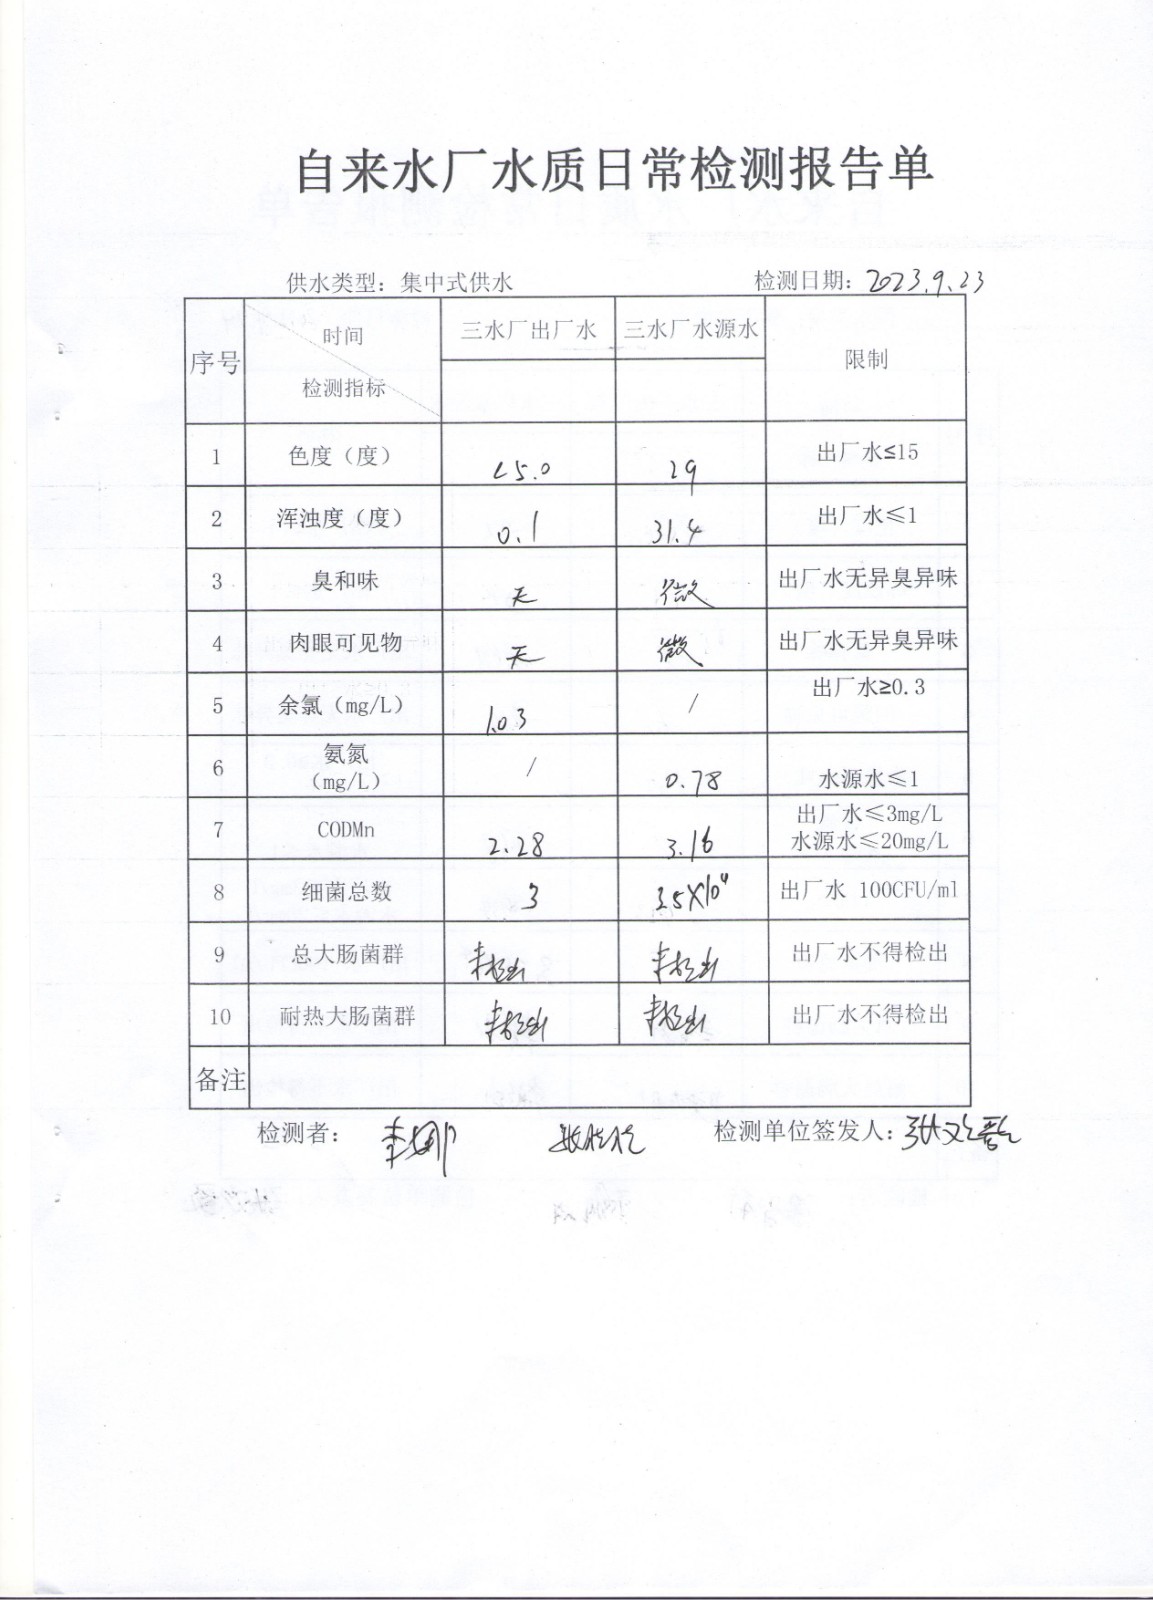 自来水厂水质日常检测报告单
供水类型：集中式供水 检测日期：2023.9.23
序号 时间 检测指标 三水厂出厂水 三水厂水源水 限制
1 色度（度） <5.0 29 出厂水≤15
2 浑浊度（度） 0.1 31.4 出厂水≤1
3 臭和味 无 微 出厂水无异臭异味
4 肉眼可见物 无 微 出厂水无异臭异味
5 余氯（mg/L） 1.03 / 出厂水≥0.3
6 氨氮
（mg/L） / 0.78 水源水≤1
7 CODMn 2.28 3.16 出厂水≤3mg/L
水源水≤20mg/L
8 细菌总数 3 3.5×10⁴ 出厂水 100CFU/ml
9 总大肠菌群 未检出 未检出 出厂水不得检出
10 耐热大肠菌群 未检出 未检出 出厂水不得检出
备注
检测者： 李娜 检测单位签发人：